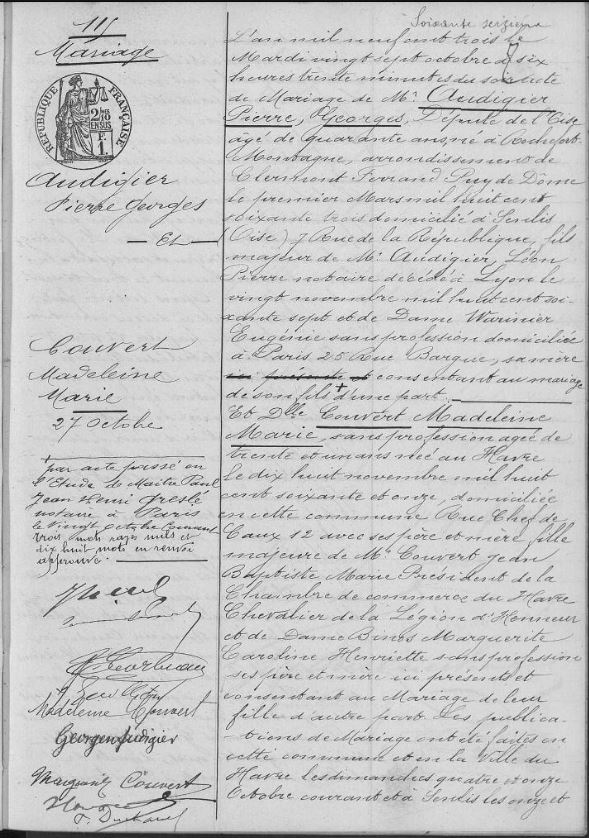 Soixante seizième
115
Mariage
RÉPUBLIQUE FRANÇAISE
2/10 EN SUS
F. 1.
Audigier
Pierre Georges
— Et —
Couvert
Madeleine
Marie
27 Octobre
par acte passé en
l'Etude de Maitre Paul
Jean Henri
notaire à Paris
le vingt octobre courant
trois mots rayés nuls et
dix huit mots en renvoi
approuvé.
Madeleine Couvert
Georges Audigier
Marguerite Couvert
L'an mil neuf cent trois le
Mardi vingt sept octobre à six
heures trente minutes du soir acte
de Mariage de Mr. Audigier
Pierre, Georges, Député de l'Oise
âgé de quarante ans, né à Rochefort
Montagne, arrondissement de
Clermont Ferrand Puy de Dôme
le premier Mars mil huit cent
soixante trois domicilié à Senlis
(Oise) 7 Rue de la République, fils
majeur de Mr. Audigier, Léon
Pierre notaire décédé à Lyon le
vingt novembre mil huit cent soi-
xante sept et de Dame Warinier
Eugénie sans profession domiciliée
à Paris 25 Rue Bargue, sa mère
ici présente et consentant au mariage
de son fils + d'une part.
Et Dlle Couvert Madeleine
Marie, sans profession agée de
trente et un ans née au Havre
le dix huit novembre mil huit
cent soixante et onze, domiciliée
en cette commune Rue Chef de
Caux 12 avec ses père et mère, fille
majeure de Mr. Couvert Jean
Baptiste Marie Président de la
Chambre de commerce du Havre
Chevalier de la Légion d'Honneur
et de Dame Marguerite
Caroline Henriette sans profession
ses père et mère ici présents et
consentant au Mariage de leur
fille d'autre part. Les publica-
tions de Mariage ont été faites en
cette commune et en la Ville du
Havre les dimanches quatre et onze
Octobre courant et à Senlis les onze et